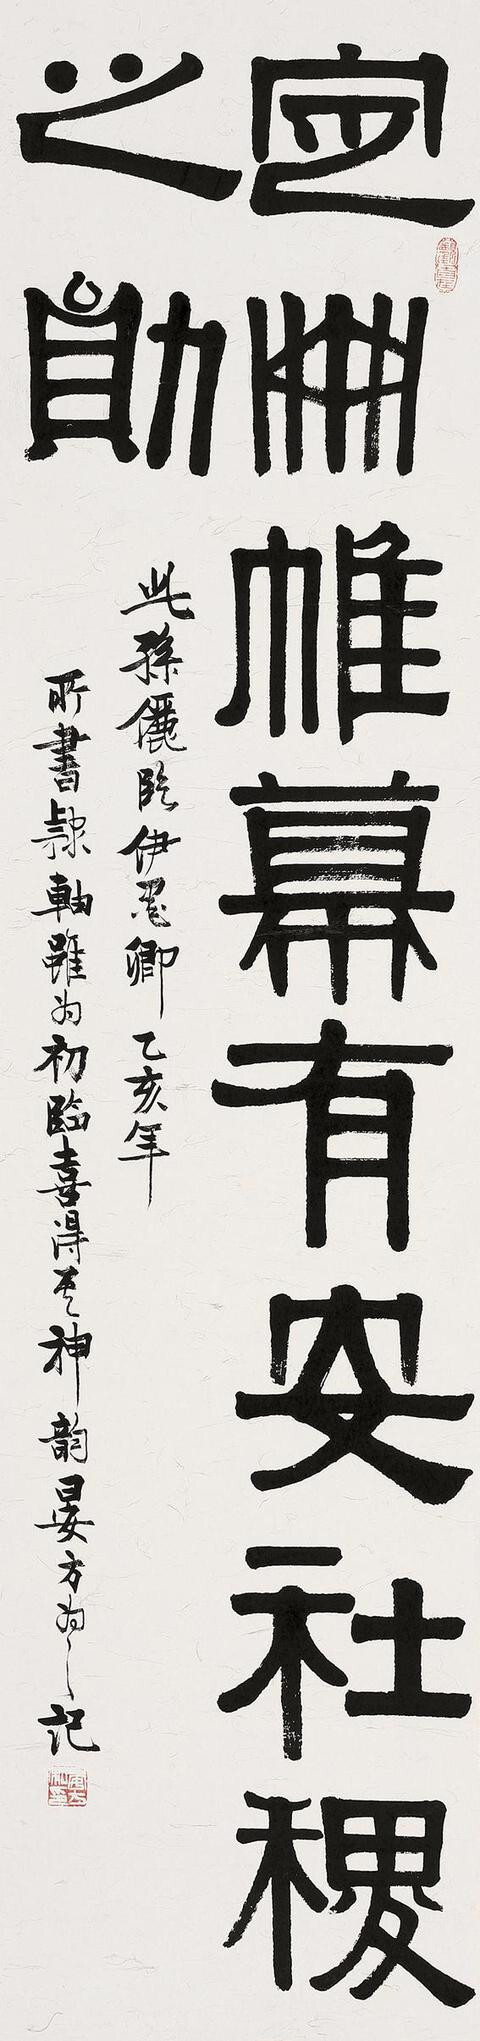 定冊帷幕有安社稷
之勛
此孫儷臨伊墨卿乙亥年
所書隸軸雖为初臨喜得其神韵晏方为之記